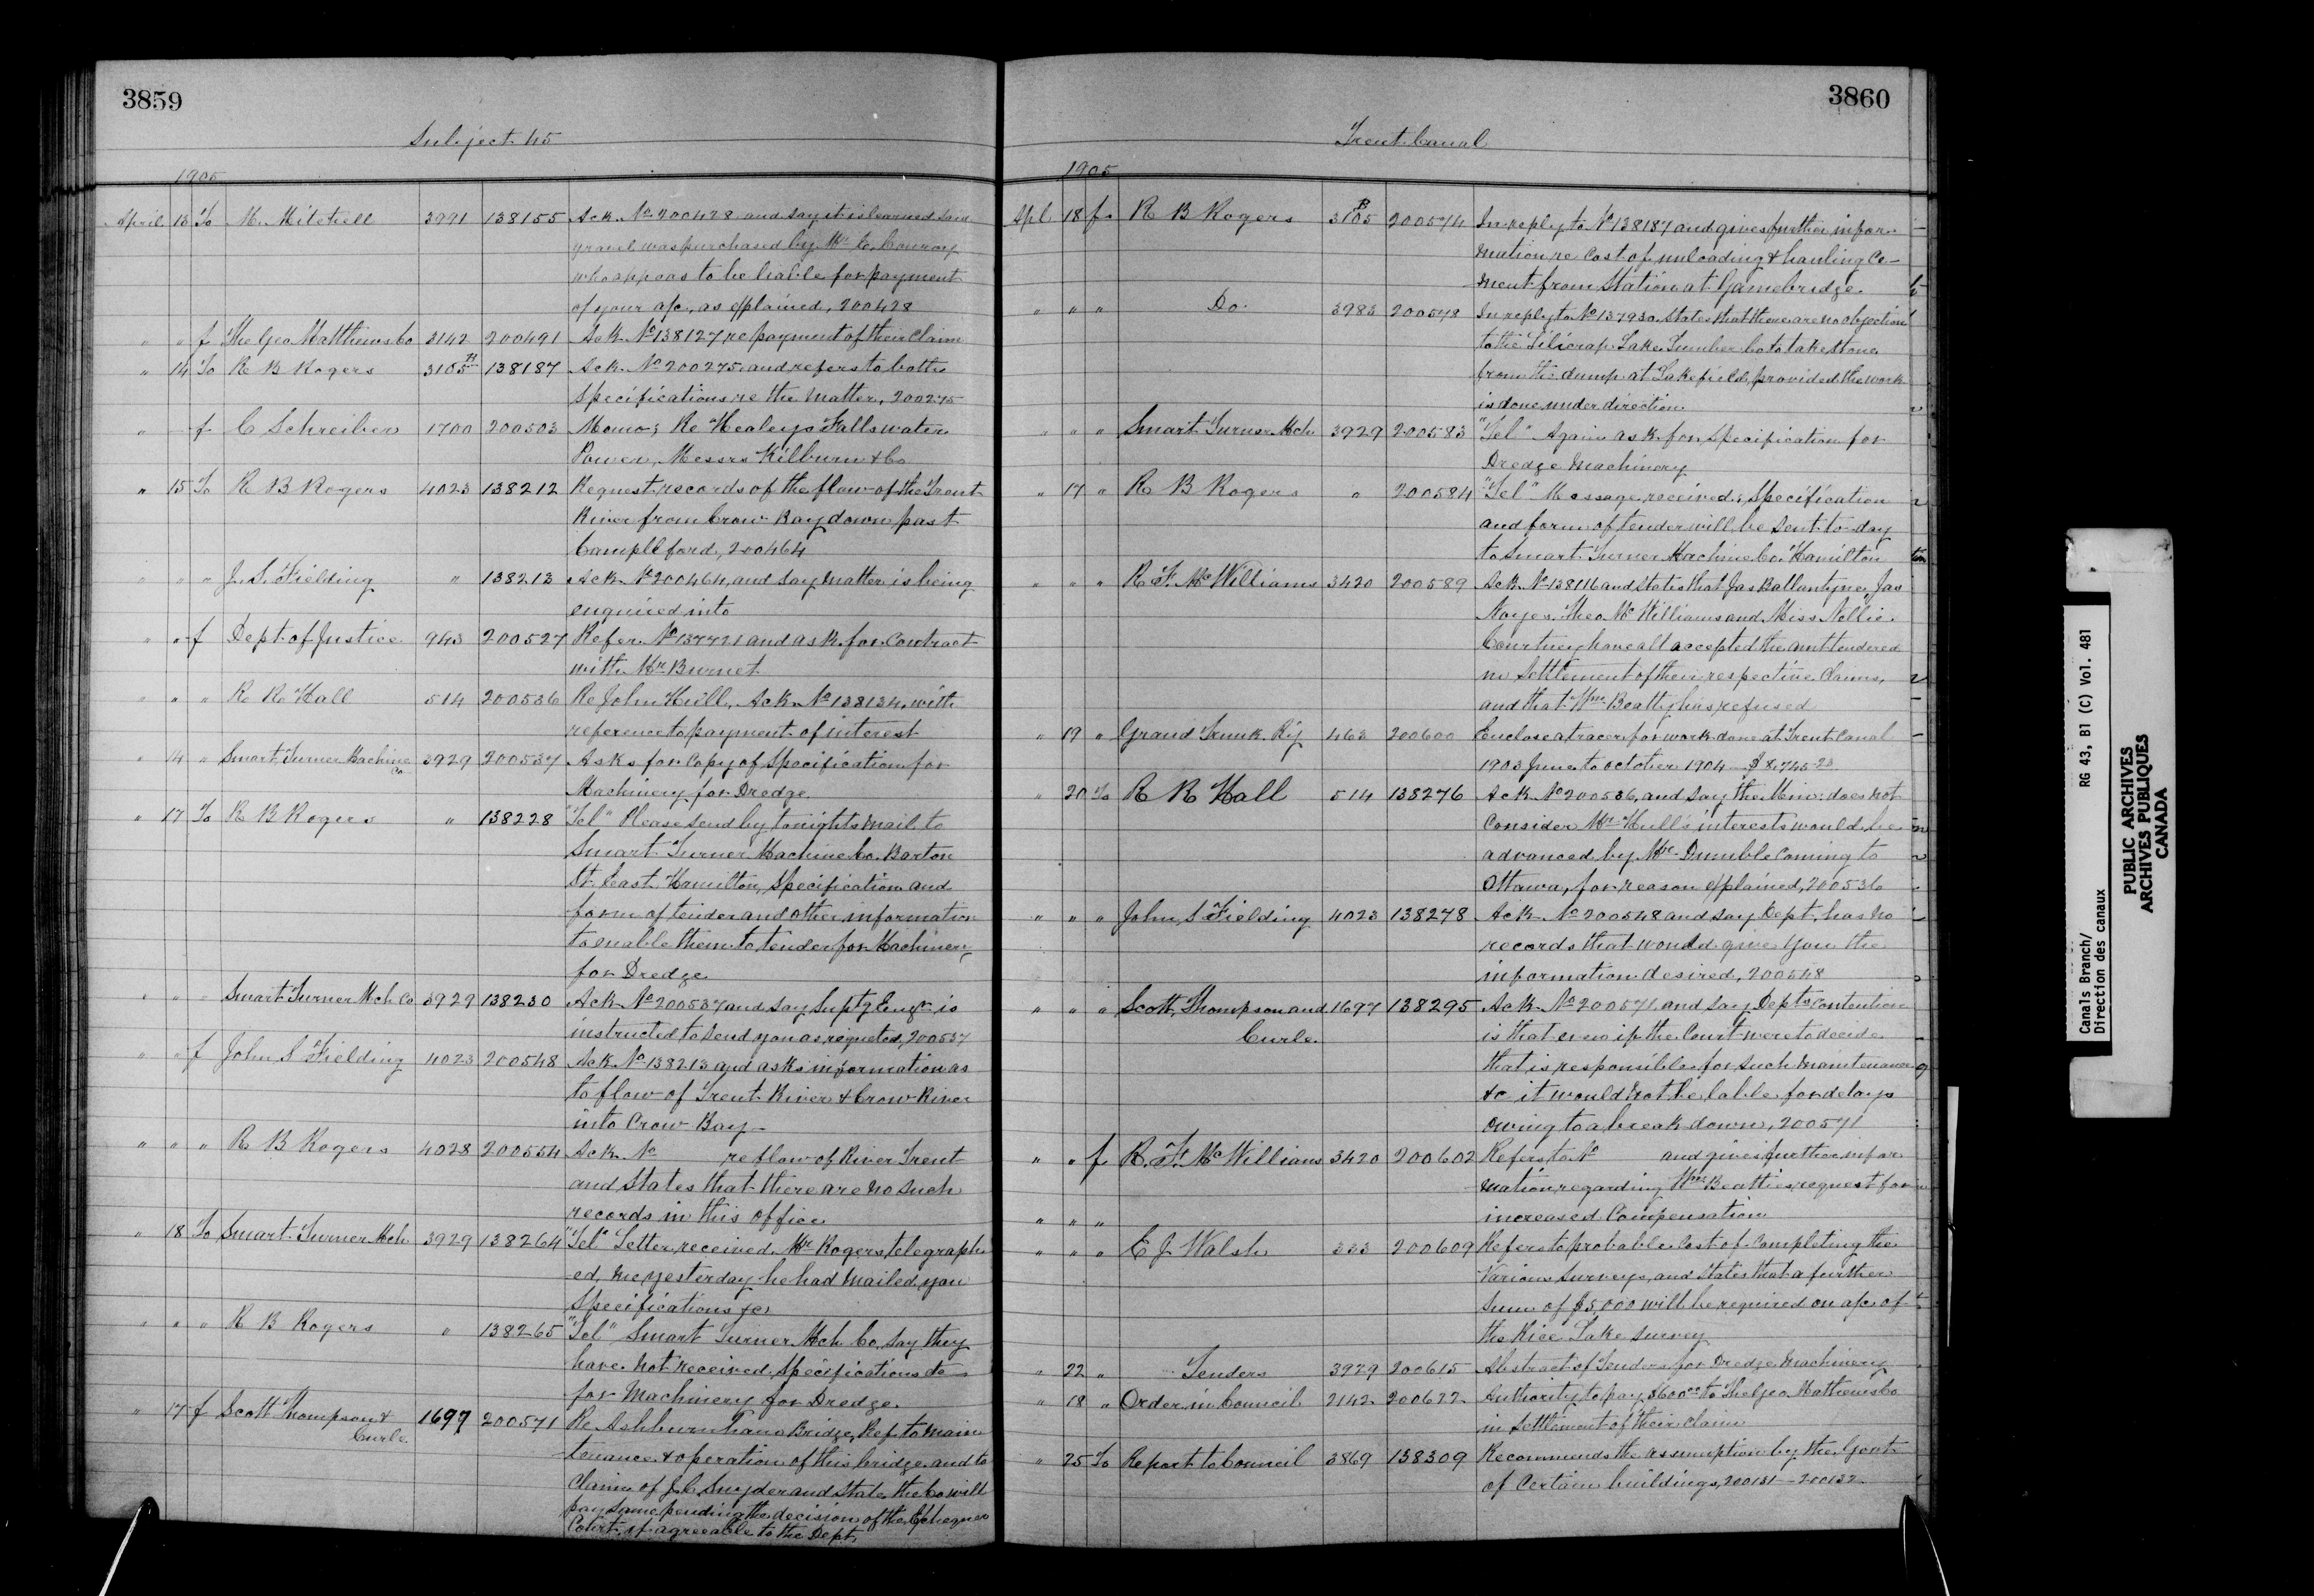 3859
Subject 45
1905
April 13 To M. Mitchell 3991 138155 Ack. No 200428 and say it is learned said
gravel was purchased by Mr C. Conroy
who appears to be liable for payment
of your a/c, as explained, 200428
" " f The Geo Matthews Co 3142 200491 Ack No 138127 re payment of their Claim
" 14 To R B Rogers 3105 H 138187 Ack. No 200275 and refers to both
Specifications re the matter, 200275
" f C Schreiber 1700 200503 Memo; Re Healeys Falls water
Power, Messrs Kilburn & Co
" 15 To R B Rogers 4023 138212 Request records of the flow of the Trent
River from Crow Bay down past
Campbllford, 200464
" " " J. S. Fielding " 138213 Ack. No 200464, and say matter is being
enquired into
" " f Dept. of Justice 943 200527 Refer. No 137721 and ask for Contract
with Mr Burnet
" " " R R Hall 514 200536 Re John Hull, Ack No 138134, with
reference to payment of interest
" 14 " Smart Turner Machine Co 3929 200537 Asks for Copy of Specification for
Machinery for Dredge
" 17 To R B Rogers " 138228 "Tel" Please send by tonights mail to
Smart Turner Machine Co. Barton
St. East Hamilton, Specification and
form of tender and other information
to enable them to tender for Machinery
for Dredge
" " " Smart Turner Mch Co 3929 138230 Ack No 200537 and say Suptg Engr is
instructed to send you as requested, 200537
" " f John S Fielding 4023 200548 Ack No 138213 and asks information as
to flow of Trent River & Crow River
into Crow Bay
" " " R B Rogers 4028 200554 Ack No re flow of River Trent
and States that there are no such
records in this office
" 18 To Smart Turner Mch 3929 138264 "Tel" Letter received Mr Rogers telegraph
-ed me yesterday he had mailed you
Specifications
" " " R B Rogers " 138265 "Tel" Smart Turner Mch Co. say they
have not received Specifications &c
for Machinery for Dredge.
" 17 f Scott Thompson & Curle 1697 200571 Re Ashburnham Bridge, Ref. to main
tenance & operation of this bridge and to
Claim of J. C. Snyder and State the Co will
pay same pending the decision of the Exchequer
Court if agreeable to the Dept.
3860
Trent Canal
1905
Apl 18 f R B Rogers 3105 B 200574 In reply to No 138187 and gives further infor-
mation re Cost of unloading & hauling Ce-
ment from Station at Gamebridge.
" " " Do. 3983 200578 In reply to No 137930. States that there are no objection
to the Lake Lumber Co to take stone
from the dump at Lakefield, provided the work
is done under direction
" " " Smart Turner Mch 3929 200583 "Tel" Again ask for Specification for
Dredge Machinery
" 17 " R B Rogers " 200584 "Tel" Message received; Specification
and form of tender will be sent to-day
to Smart Turner Machine Co. Hamilton
" " " R. F. McWilliams 3420 200589 Ack No 138116 and states that Jas Ballantyne, Jas
Noyes, Theo McWilliams and Miss Nellie
Courtney have all accepted the amt tendered
in Settlement of their respective Claims,
and that Wm Beatty has refused
" 19 " Grand Trunk Ry 463 200600 Enclose a tracer for work done at Trent Canal
1903 June to October 1904 $8,745.23
" 20 To R R Hall 514 138276 Ack No 200536, and say the Min. does not
Consider Mr Hull's interests would be
advanced by Mr Dumble Coming to
Ottawa, for reason explained, 200536
" " " John S Fielding 4023 138278 Ack. No 200548 and say Dept. has no
records that would give you the
information desired, 200548
" " " Scott, Thompson and Curle 1697 138295 Ack No 200571, and say Depts Contention
is that even if the Court were to decide
that is responsible for such maintenance
&c it would not be lable for delays
owing to a break down, 200571
" " f R. F. McWilliams 3420 200602 Refers to No and gives further infor
mation regarding Wm Beatties request for
increased Compensation
" " "
" " " E J Walsh 333 200609 Refers to probable Cost of Completing the
Various Surveys, and states that a further
Sum of $5,000 will be required on a/c of
the Rice Lake Survey
" 22 " Tenders 3929 200615 Abstract of Tenders for Dredge Machinery
" 18 " Order in Council 2142 200622 Authority to pay $600.00 to The Geo. Mathews Co
in Settlement of their Claim
" 25 To Report to Council 3869 138309 Recommends the assumption by the Govt
of Certain buildings, 200131 - 200132
Canals Branch/
Direction des canaux
RG 43, B1 (C) Vol. 481
PUBLIC ARCHIVES
ARCHIVES PUBLIQUES
CANADA